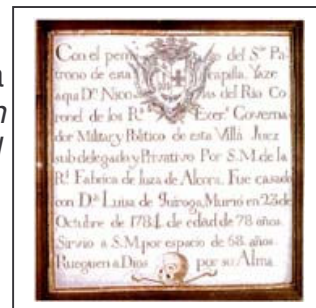 a
n
l
Con el perm⁠o del Sᵒʳ Pa
trono de esta Capilla. Yaze
aqui Dⁿ Nico as del Rio Co
ronel de los Rˢ Exerᵒˢ Governa
dor Militar y Politico de esta Villa Juez
subdelegado y Privativo Por S.M. de la
Rˡ Fabrica de loza de Alcora. Fue casado
con Dᵃ Luisa de Quiroga, Murio en 23 de
Octubre de 1784 de edad de 78 años.
Sirvio a S.M. por espacio de 58 años
Rueguen a Dios por su Alma